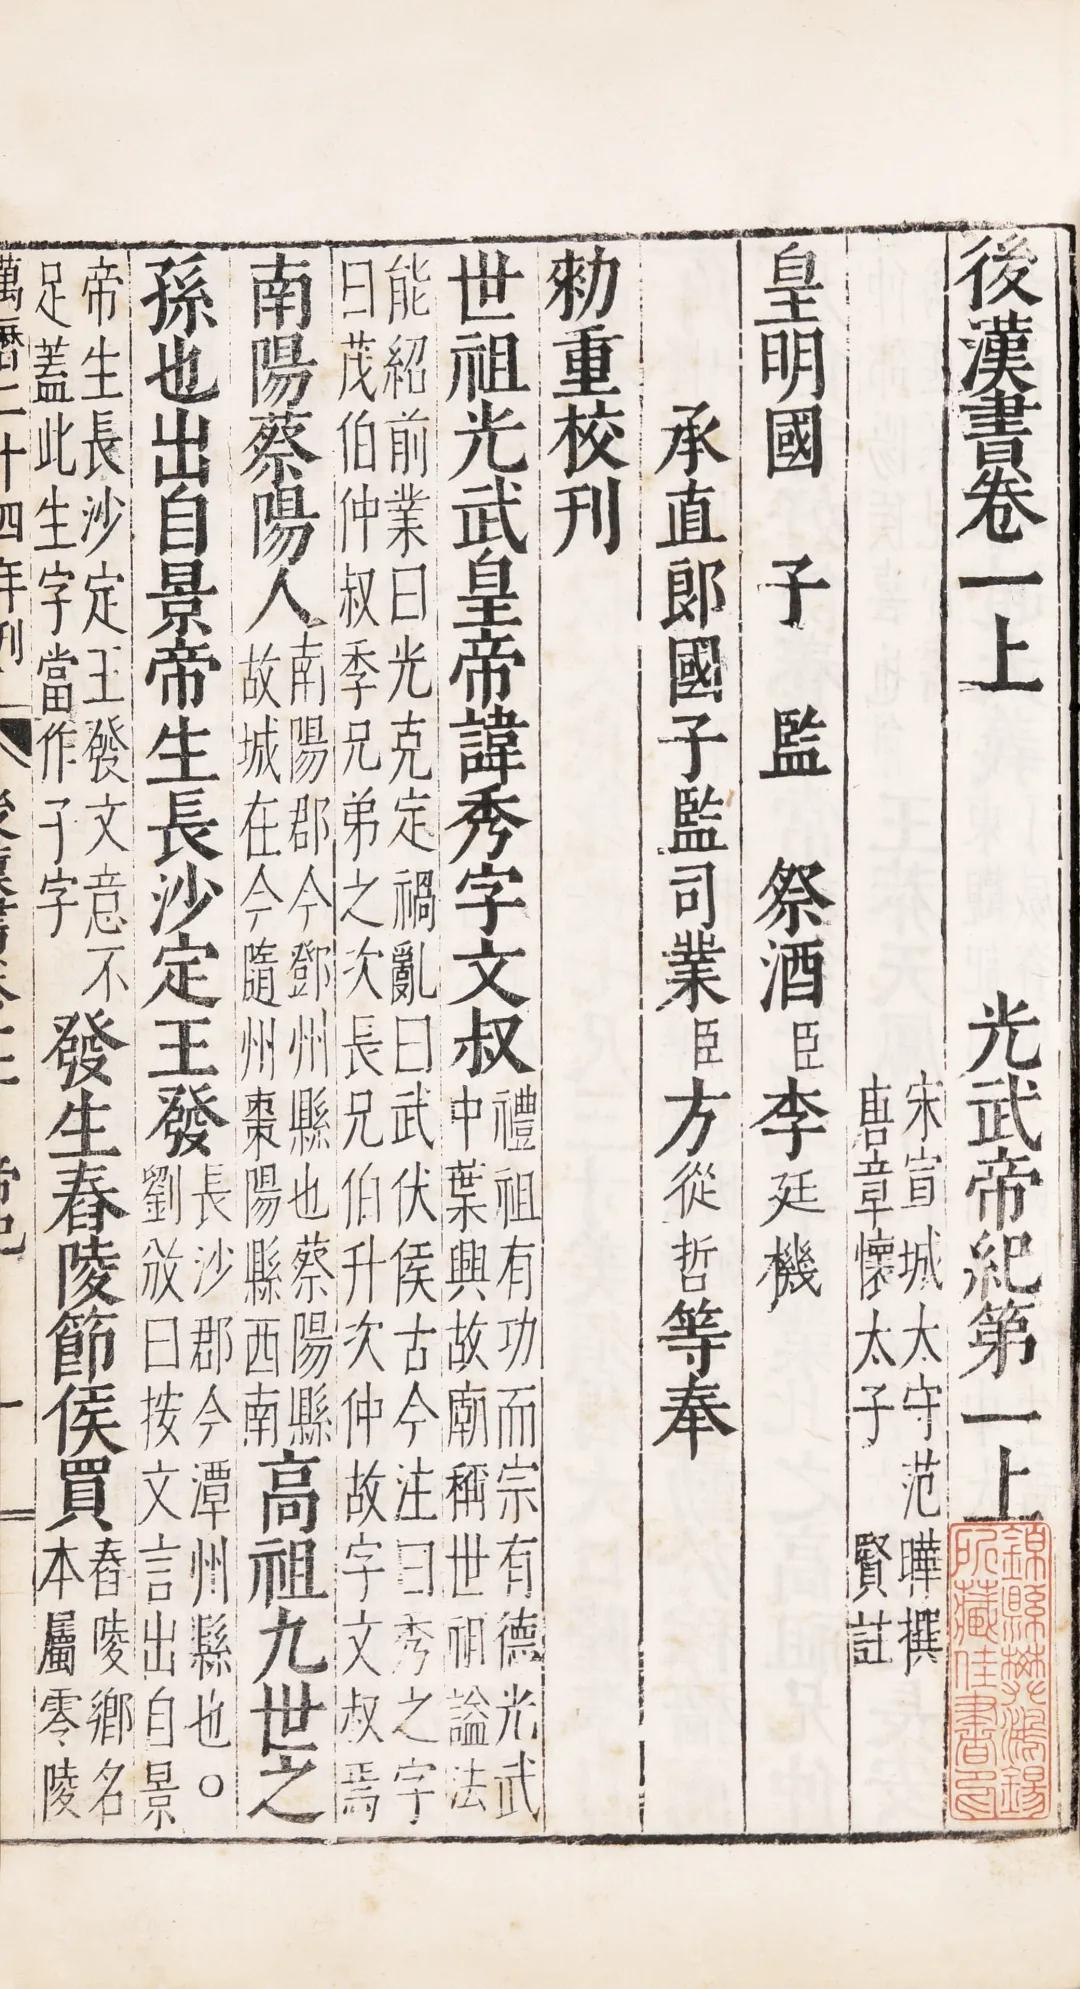 後漢書卷一上 光武帝紀第一上
宋宣城太守范曄撰
唐章懷太子賢註
皇明國子監祭酒臣李廷機
承直郎國子監司業臣方從哲等奉
勑重校刊
世祖光武皇帝諱秀字文叔
禮祖有功而宗有德光武
中葉興故廟稱世祖謚法
能紹前業曰光克定禍亂曰武伏侯古今注曰秀之字
曰茂伯仲叔季兄弟之次長兄伯升次仲故字文叔焉
南陽蔡陽人
南陽郡今鄧州縣也蔡陽縣
故城在今隨州棗陽縣西南
高祖九世之
孫也出自景帝生長沙定王發
長沙郡今潭州縣也○
劉攽曰按文言出自景
帝生長沙定王發文意不
足蓋此生字當作子字
發生舂陵節侯買
舂陵鄉名
本屬零陵
萬曆二十四年刊
錦縣樊漱錫
所藏佳書印